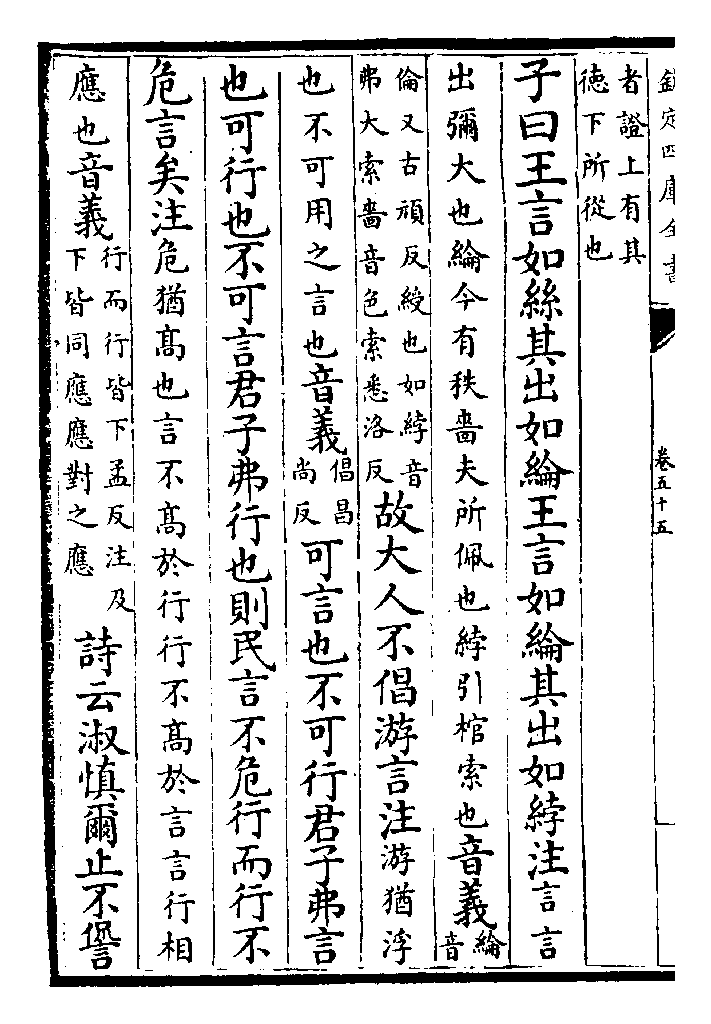 欽定四庫全書
卷五十五
者證上有其
德下所從也
子曰王言如絲其出如綸王言如綸其出如綍注言言
出彌大也綸今有秩嗇夫所佩也綍引棺索也音義綸音
倫又古頑反綬也如綍音
弗大索嗇音色索悉洛反故大人不倡游言注游猶浮
也不可用之言也音義倡昌尚反可言也不可行君子弗言
也可行也不可言君子弗行也則民言不危行而行不
危言矣注危猶髙也言不髙於行行不髙於言言行相
應也音義行而行皆下孟反注及下皆同應應對之應詩云淑慎爾止不諐